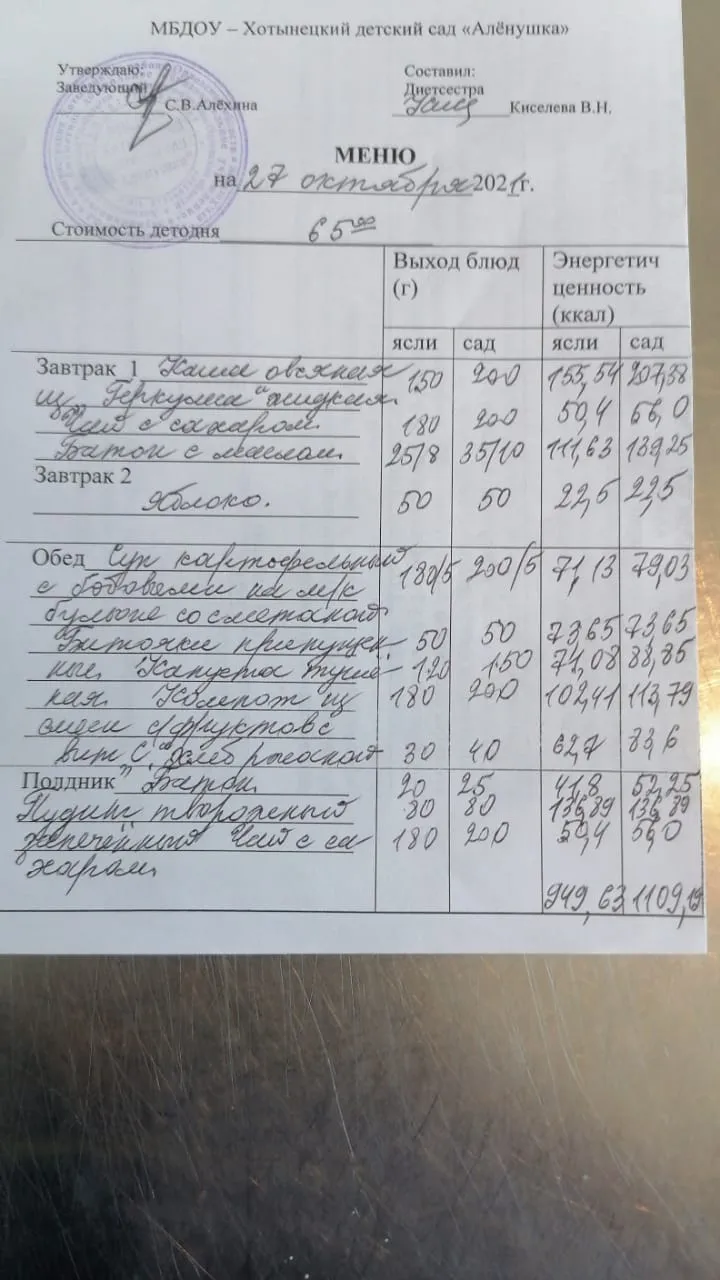 МБДОУ – Хотынецкий детский сад «Алёнушка»
Утверждаю: Составил:
Заведующий Диетсестра
С.В.Алёхина Киселева В.Н.
МЕНЮ
на 27 октября 2021г.
Стоимость детодня 65 00
Выход блюд (г) Энергетич ценность (ккал)
ясли сад ясли сад
Завтрак 1 Каша овсяная 150 200 155,54 207,38
из "Геркулеса" жидкая.
Чай с сахаром. 180 200 50,4 56,0
Батон с маслом. 25/8 35/10 111,63 139,25
Завтрак 2
Яблоко. 50 50 22,5 22,5
Обед Суп картофельный 180/5 200/5 71,13 79,03
с бобовыми на м/к
бульоне со сметаной
Биточки припущен 50 50 73,65 73,65
ные. Капуста туше 120 150 71,08 88,85
ная. Компот из 180 200 102,41 113,79
смеси с/фруктов с
вит "С". Хлеб ржаной 30 40 62,7 83,6
Полдник Батон. 20 25 41,8 52,25
Пудинг творожный 80 80 136,89 136,89
запечённый Чай с са 180 200 50,4 56,0
харом.
949,63 1109,19